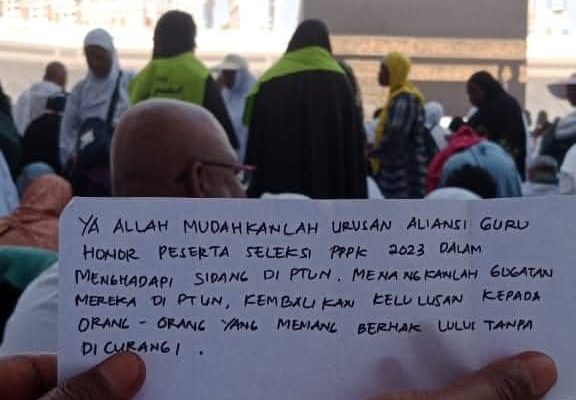 YA ALLAH MUDAHKANLAH URUSAN ALIANSI GURU
HONOR PESERTA SELEKSI PPPK 2023 DALAM
MENGHADAPI SIDANG DI PTUN. MENANGKANLAH GUGATAN
MEREKA DI PTUN, KEMBALIKAN KELULUSAN KEPADA
ORANG - ORANG YANG MEMANG BERHAK LULUS TANPA
DICURANGI.